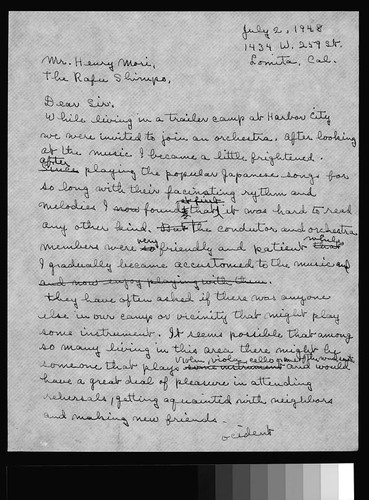 July 2, 1948
1434 W. 259 St.
Lomita, Cal.
Mr. Henry Mori,
The Rafu Shimpo,
Dear Sir.
While living in a trailer camp at Harbor City
we were invited to join an orchestra. After looking
at the music I became a little frightened.
after
Since playing the popular Japanese songs for
so long with their facinating rythm and
at first
melodies I now found that it was hard to read
any other kind. But the condutor and orchestra
very
members were so friendly and patient that
I gradually became accustomed to the music and
and now enjoy playing with them.
They have often asked if there was anyone
else in our camp or vicinity that might play
some instrument. It seems possible that among
so many living in this area there might be
violin, viola, cello
someone that plays some instrument and would
have a great deal of pleasure in attending
rehersals, getting aquainted with neighbors
and making new friends.
ocident